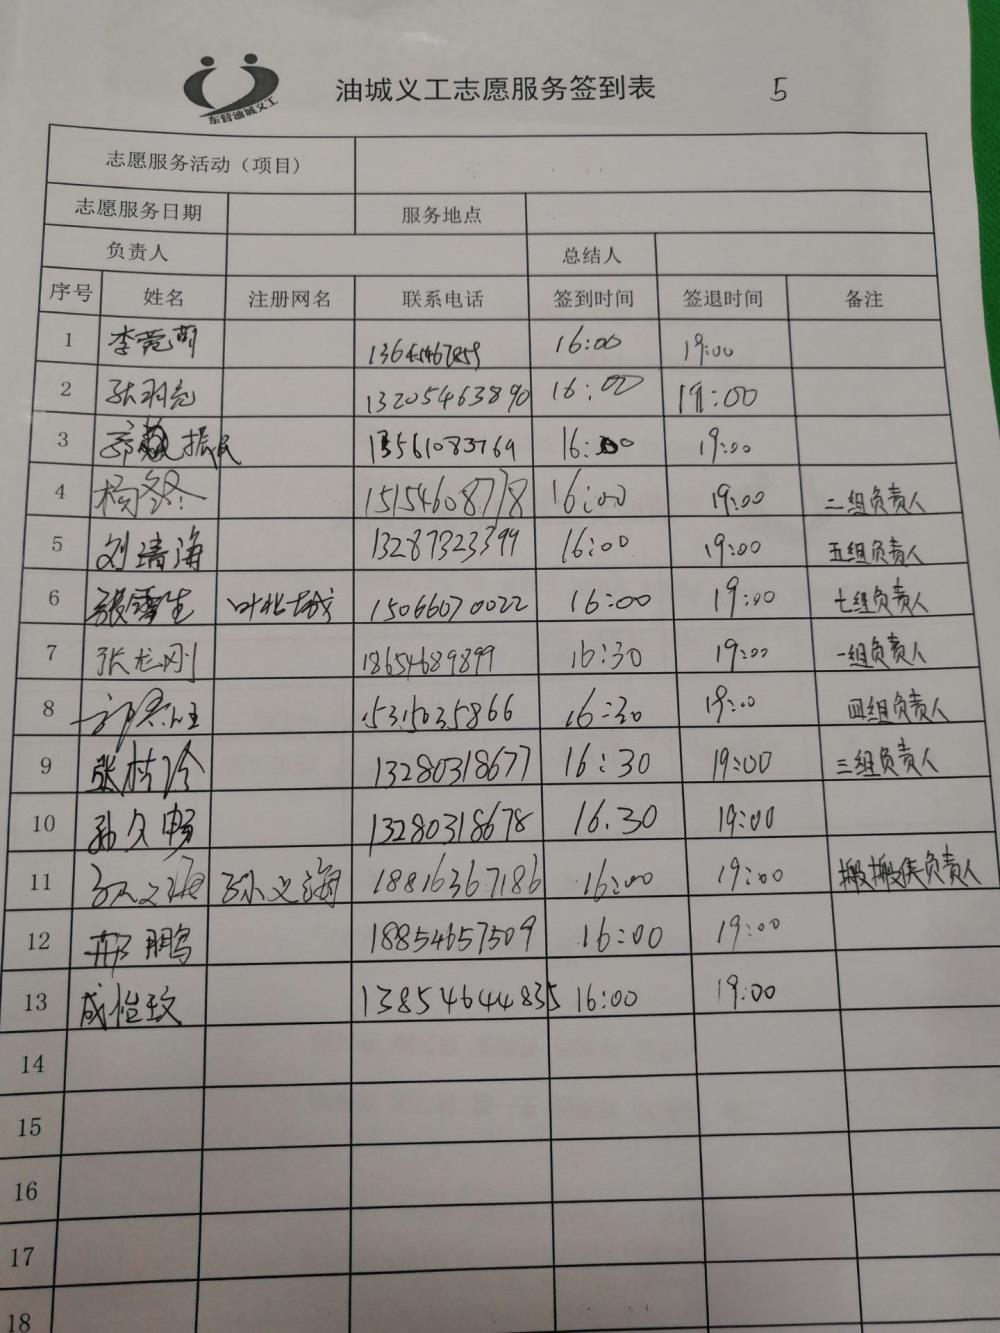 东营油城义工
油城义工志愿服务签到表 5
志愿服务活动（项目）
志愿服务日期 服务地点
负责人 总结人
序号 姓名 注册网名 联系电话 签到时间 签退时间 备注
1 李莞萌 16:00 19:00
2 张羽亮 13205463890 16:00 19:00
3 振民 13561083769 16:00 19:00
4 杨冬冬 15154608778 16:00 19:00 二组负责人
5 刘靖海 13287323399 16:00 19:00 五组负责人
6 张雷生 叶北城 15066070022 16:00 19:00 七组负责人
7 张龙刚 18654689899 16:30 19:00 一组负责人
8 15315035866 16:30 19:00 四组负责人
9 13280318677 16:30 19:00 三组负责人
10 孙久畅 13280318678 16.30 19:00
11 孙义海 孙义海 18816367186 16:00 19:00 搬搬侠负责人
12 鹏 18854657509 16:00 19:00
13 成怡玟 13854644835 16:00 19:00
14
15
16
17
18